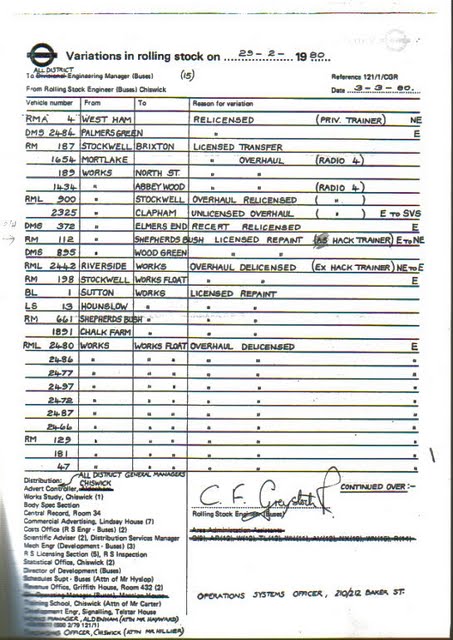 Variations in rolling stock on 29-2- 1980
ALL DISTRICT
To Divisional Engineering Manager (Buses) (15) Reference 121/1/CGR
From Rolling Stock Engineer (Buses) Chiswick Date 3-3-80.
Vehicle number From To Reason for variation
RMA 4 WEST HAM RELICENSED (PRIV. TRAINER) NE
DMS 2486 PALMERS GREEN " E
RM 187 STOCKWELL BRIXTON LICENSED TRANSFER
1654 MORTLAKE " OVERHAUL (RADIO 4)
189 WORKS NORTH ST. " "
1434 " ABBEY WOOD " " (RADIO 4)
RML 900 " STOCKWELL OVERHAUL RELICENSED ( " )
2325 " CLAPHAM UNLICENSED OVERHAUL ( " ) E TO SVS
DMS 372 " ELMERS END RECERT RELICENSED E
RM 112 " SHEPHERDS BUSH LICENSED REPAINT ( HACK TRAINER) E TO NE
DMS 895 " WOOD GREEN " "
RML 2442 RIVERSIDE WORKS OVERHAUL DELICENSED (EX HACK TRAINER) NE TO E
RM 198 STOCKWELL WORKS FLOAT " " E
BL 1 SUTTON WORKS LICENSED REPAINT
LS 13 HOUNSLOW " " "
RM 661 SHEPHERDS BUSH " " "
1891 CHALK FARM " " "
RML 2480 WORKS WORKS FLOAT OVERHAUL DELICENSED E
2486 " " " " "
2477 " " " " "
2497 " " " " "
2472 " " " " "
2487 " " " " "
2466 " " " " "
RM 129 " " " " "
181 " " " " "
47 " " " " "
Distribution: ALL DISTRICT GENERAL MANAGERS
CHISWICK
Advert Controller, Aldenham
Works Study, Chiswick (1)
Body Spec Section
Central Record, Room 34
Commercial Advertising, Lindsey House (7)
Costs Office (R S Engr - Buses) (2)
Scientific Adviser (2), Distribution Services Manager
Mech Engr (Development) - (3)
R S Licensing Section (5), R S Inspection
Statistical Office, Chiswick (2)
Director of Development (Buses)
Schedules Supt - Buses (Attn of Mr Hyslop)
Revenue Office, Griffith House, Room 432 (2)
Training School, Chiswick (Attn of Mr Carter)
Development Engr, Signalling, Telstar House
WORKS MANAGER, ALDENHAM (ATTN MR HAYWARD)
OFFICER, CHISWICK (ATTN MR HILLIER)
CONTINUED OVER :-
Rolling Stock Engineer (Buses)
Area Administration Assistants
OPERATIONS SYSTEMS OFFICER, 210/212 BAKER ST.